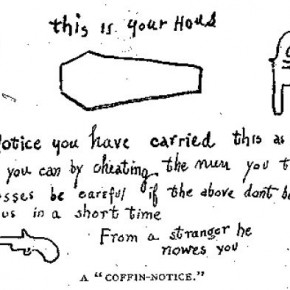 this is your Hous
Notice you have carried this as
you can by cheating the men you t
sses be careful if the above dont b
us in a short time
From a stranger he
nowes you
A "COFFIN-NOTICE."